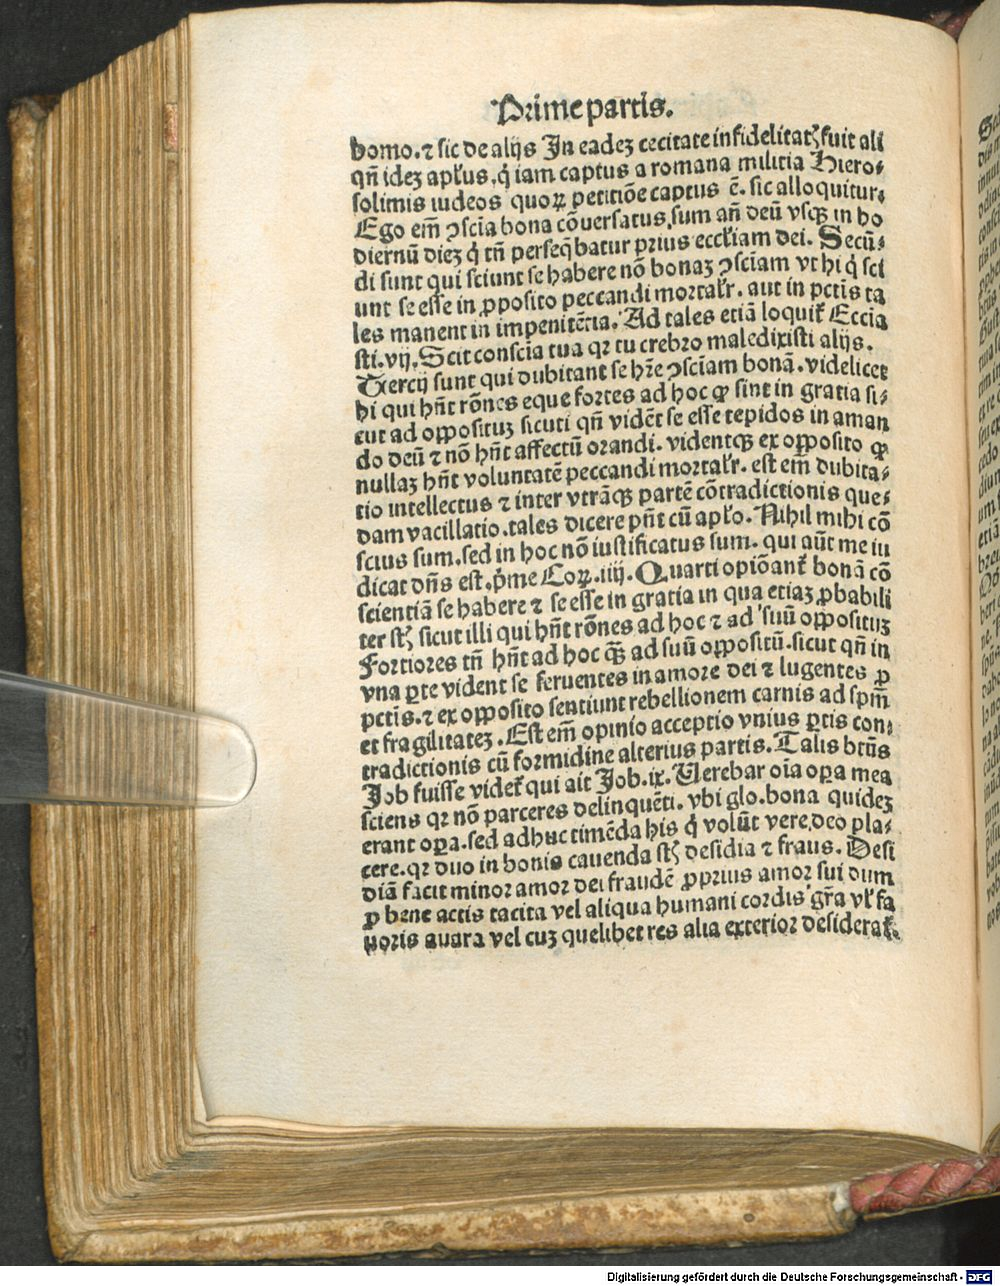 Prime partis.
homo.⁊ sic de alijs In eadeʒ cecitate infidelitatꝭ fuit ali
qn̄ ideʒ apl̓us,q̇ iam captus a romana militia Hiero⸗
solimis iudeos quoꝝ petitiōe captus ē. sic alloquitur.
Ego em̄ ꝯscīa bona cōuersatus,sum añ deū vsqꝫ in ho
diernū dieʒ q̇ tn̄ perseq̄batur prius eccl̓iam dei. Secū⸗
di sunt qui sciunt se habere nō bonaʒ ꝯscīam vt hi q̇ sci
unt se esse in ꝓposito peccandi mortal̓r. aut in pctīs ta
les manent in impenitētia. Ad tales etiā loquit̉ Eccīa
sti.vij. Scit conscīa tua qꝛ tu crebro maledixisti alijs.
Tercij sunt qui dubitant se hr̄e ꝯscīam bonā. videlicet
hi qui hn̄t rōnes eque fortes ad hoc ꝙ sint in gratia si⸗
cut ad oꝓosituʒ sicuti qn̄ vidēt se esse tepidos in aman
do deū ⁊ nō hn̄t affectū orandi. videntqꝫ ex oꝓosito ꝙ
nullaʒ hn̄t voluntatē peccandi mortal̓r. est em̄ dubita⸗
tio intellectus ⁊ inter vtrāqꝫ partē cōtradictionis que⸗
dam vacillatio.tales dicere pn̄t cū apl̓o. Nihil mihi cō
scius sum.sed in hoc nō iustificatus sum. qui aūt me iu
dicat dn̄s est.p̄me Coꝝ.iiij. Quarti opiōant̉ bonā cō
scientiā se habere ⁊ se esse in gratia in qua etiaʒ ꝓbabili
ter stꝭ sicut illi qui hn̄t rōnes ad hoc ⁊ ad suū oꝓosituʒ
Fortiores tn̄ hn̄t ad hoc q̄ꝫ ad suū oꝓositū.sicut qn̄ in
vna ꝑte vident se feruentes in amore dei ⁊ lugentes ꝓ
pctīs.⁊ ex oꝓosito sentiunt rebellionem carnis ad spm̄
et fragilitateʒ. Est em̄ opinio acceptio vnius ꝑtis con⸗
tradictionis cū formidine alterius partis. Talis btūs
Job fuisse videt̉ qui ait Job.ix. Uerebar oīa oꝑa mea
sciens qꝛ nō parceres delinquēti. vbi glo.bona quideʒ
erant oꝑa.sed adhuc timēda his q̇ volūt vere,deo pla⸗
cere.qꝛ duo in bonis cauenda stꝭ desidia ⁊ fraus. Desi
diā facit minor amor dei fraudē ꝓprius amor sui dum
ꝓ bene actis tacita vel aliqua humani cordis gr̄a vl̓ fa
uoris auara vel cuʒ quelibet res alia exterior desiderat̉.
Digitalisierung gefördert durch die Deutsche Forschungsgemeinschaft - DFG